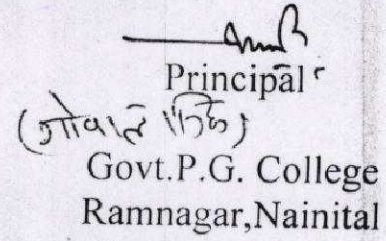 Principal
(गोपाल सिंह)
Govt.P.G. College
Ramnagar,Nainital